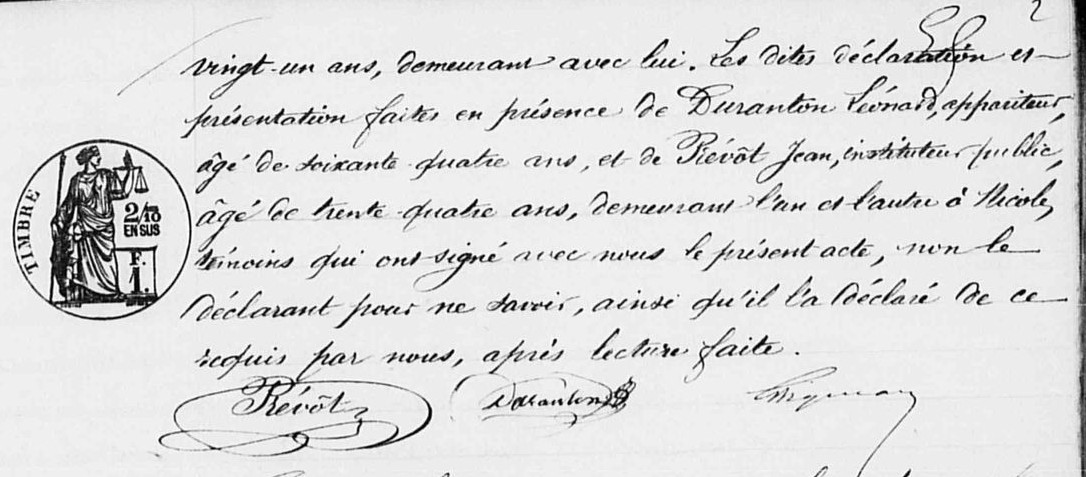 2
vingt-un ans, demeurant avec lui. Les dites déclaration et
présentation faites en présence de Duranton Léonard, appariteur,
âgé de soixante-quatre ans, et de Prévôt Jean, instituteur public,
âgé de trente-quatre ans, demeurant l'un et l'autre à Nicole,
témoins qui ont signé avec nous le présent acte, non le
déclarant pour ne savoir, ainsi qu'il l'a déclaré de ce
requis par nous, après lecture faite.
TIMBRE
2/10
EN SUS
F.
1.
Prévôt Duranton